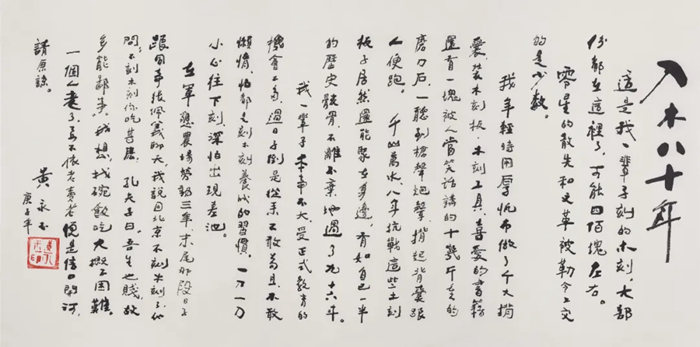 入木八十年
這是我一輩子刻的木刻，大部
份都在這裡了，可能四佰塊左右。
零星的散失和文革被勒令上交
的是少數。
我年輕時用厚帆布做了个大揹
囊，裝木刻板，木刻工具，喜愛的書籍
還有一塊被人當笑話講的十幾斤重的
磨刀石，一聽到槍聲炮聲，揹起背囊跟
人便跑。千山萬水，八年抗戰這些土刻
板子居然還能聚在身邊，有如自己一半
的歷史骸骨，不離不棄地過了九十六年。
我一輩子本事不大，受正式教育的
機會不多，過日子倒是從來不敢苟且，不敢
懶惰，怕都是刻木刻養成的習慣，一刀一刀
小心往下刻，深怕出現差池。
在軍墾農場勞動三年末尾那段日子
跟同事張佩義聊天，我說回北京不刻木刻了，他
問，不刻木刻你吃甚麼，孔夫子曰，吾少也賤，故
多能鄙事，我想找碗飯吃大概不困難。
一個人老了，若不依老賣老，便是信口開河，
請原諒。
黃永玉
庚子年